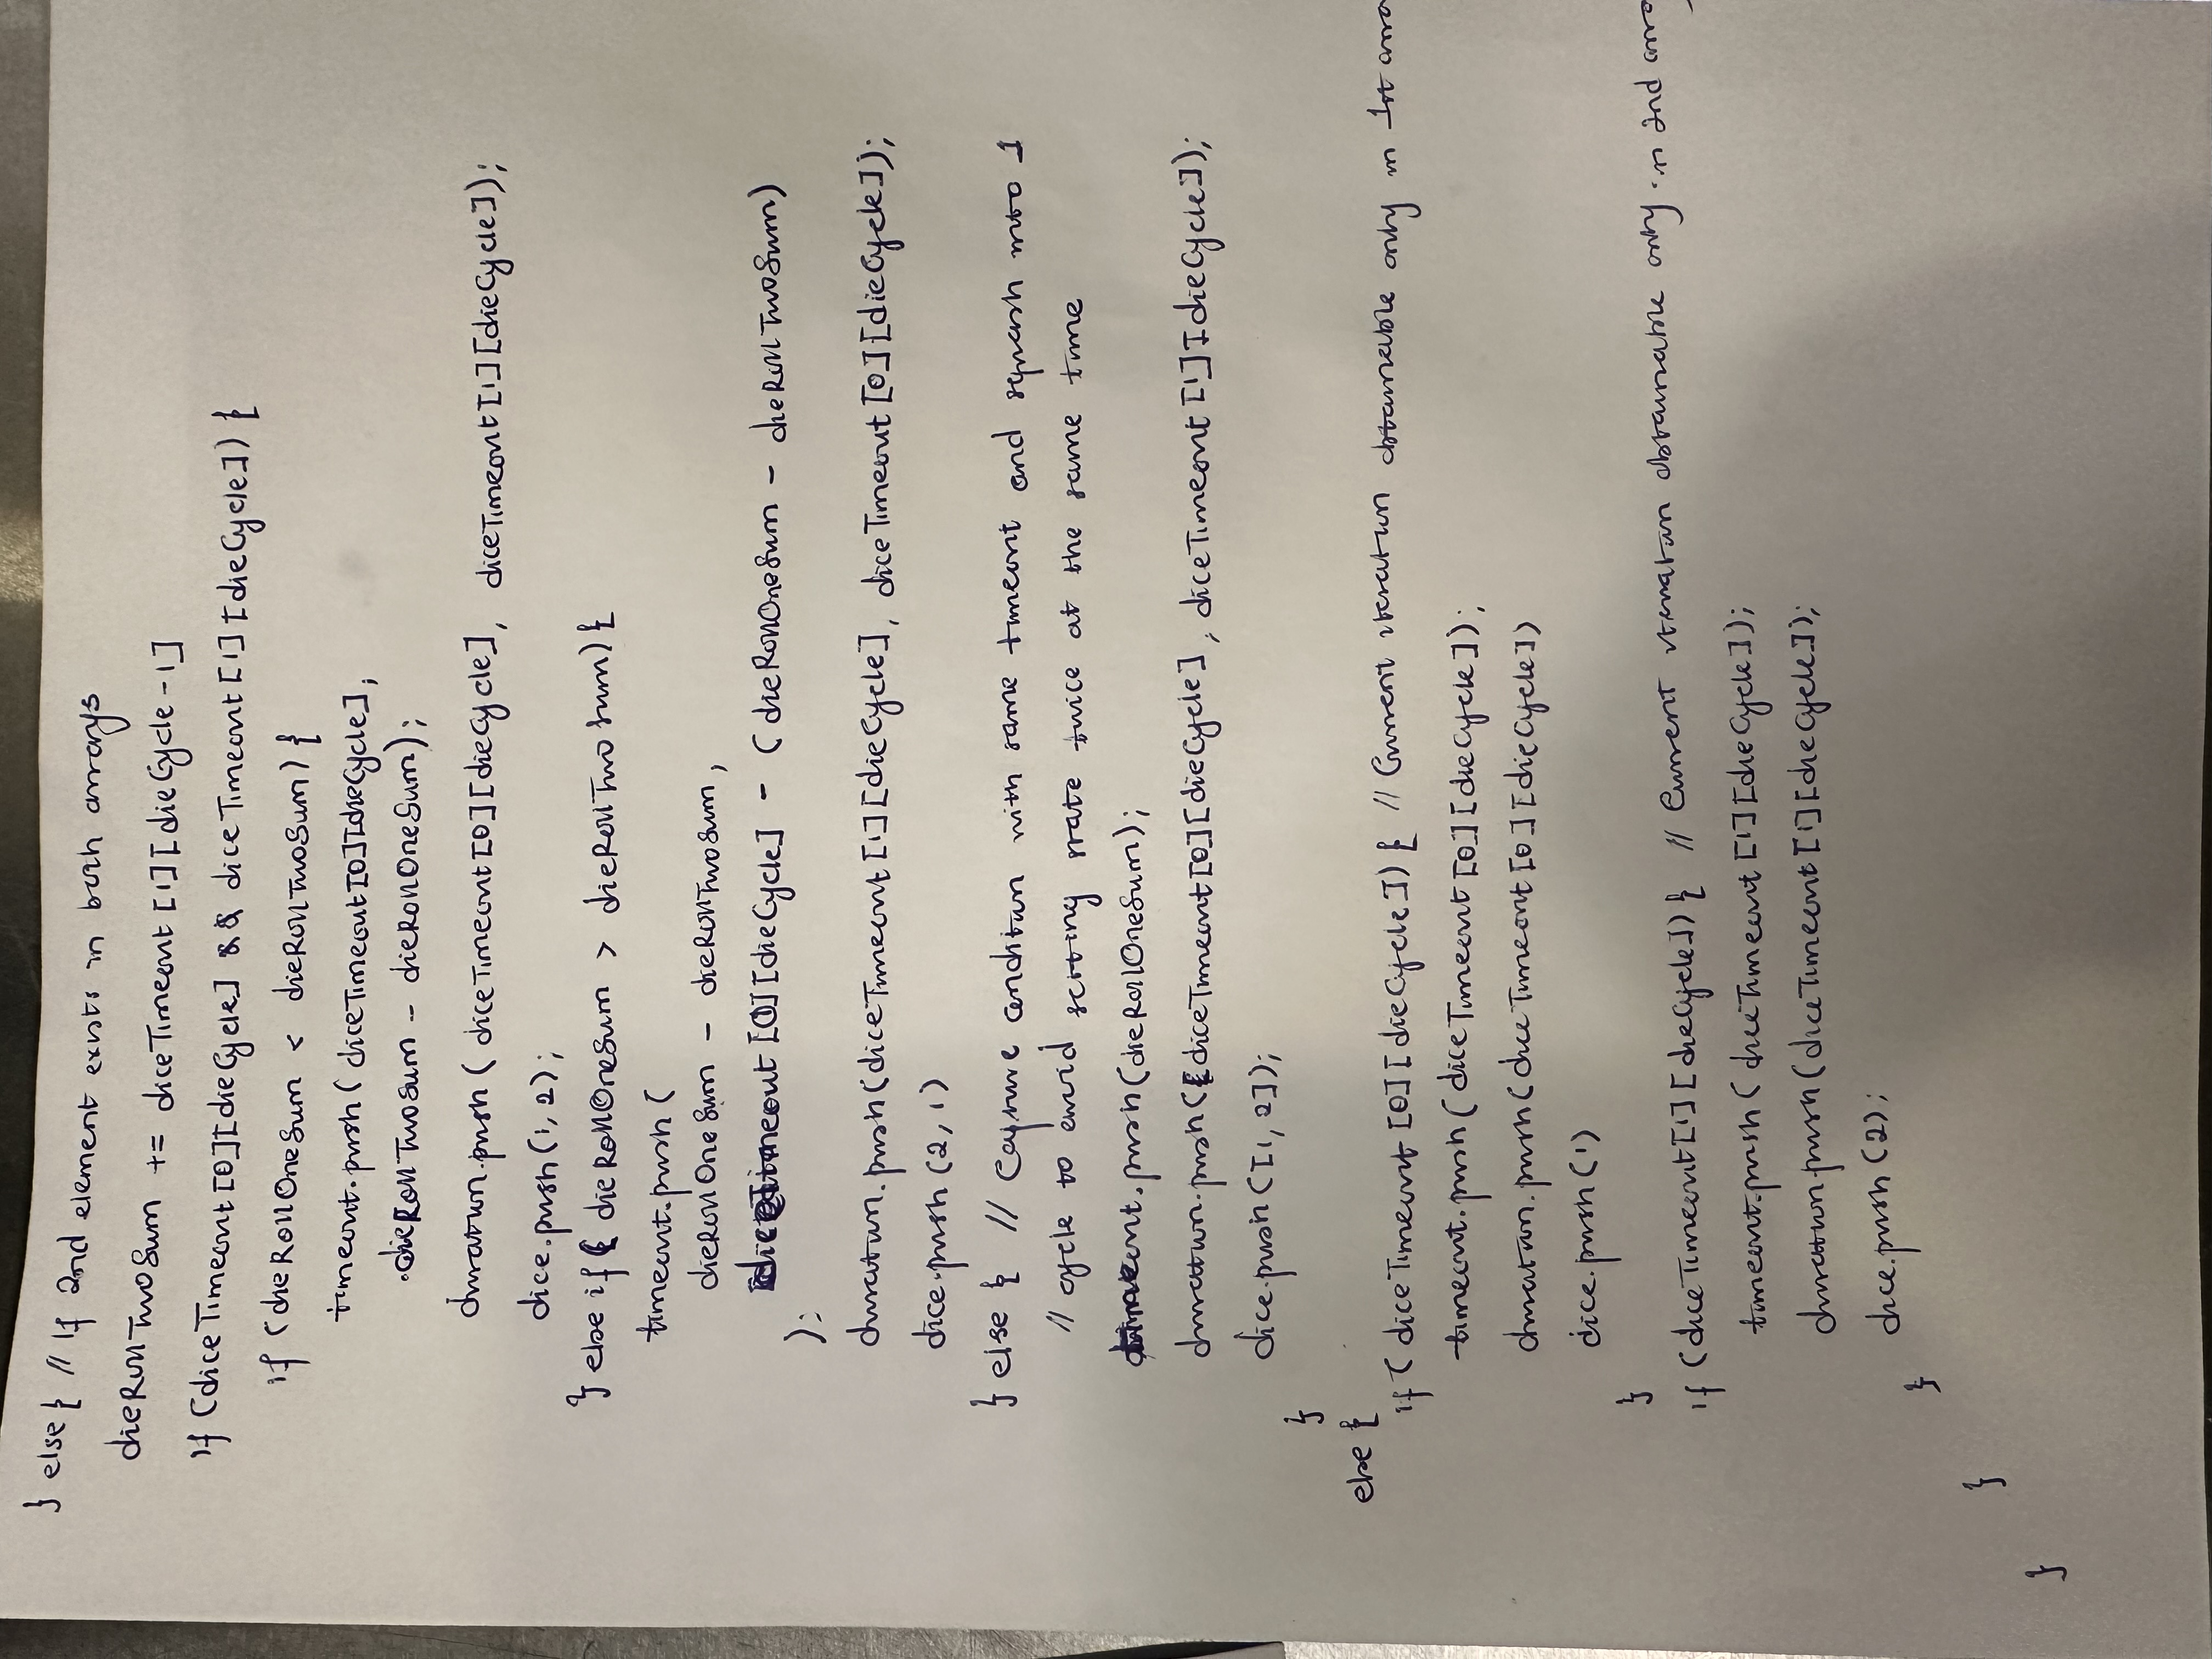 } else { // If 2nd element exists in both arrays
dieRollTwoSum += diceTimeout [1][dieCycle - 1]
if (diceTimeout[0][dieCycle] && diceTimeout[1][dieCycle]) {
if (dieRollOneSum < dieRollTwoSum) {
timeout.push( diceTimeout[0][dieCycle],
dieRollTwoSum - dieRollOneSum);
duration.push( diceTimeout[0][dieCycle], diceTimeout[1][dieCycle]);
dice.push(1, 2);
} else if ( dieRollOneSum > dieRollTwoSum) {
timeout.push (
dieRollOneSum - dieRollTwoSum,
diceTimeout [0][dieCycle] - (dieRollOneSum - dieRollTwoSum)
);
duration.push(diceTimeout [1][dieCycle], diceTimeout [0][dieCycle]);
dice.push (2, 1)
} else { // Capture condition with same timeout and squash into 1
// cycle to avoid setting state twice at the same time
timeout.push(dieRollOneSum);
duration.push([diceTimeout[0][dieCycle], diceTimeout[1][dieCycle]);
dice.push([1, 2]);
}
else {
if (diceTimeout [0][dieCycle]) { // Current iteration obtainable only in 1st arra
timeout.push( diceTimeout [0][dieCycle]);
duration.push(diceTimeout [0][dieCycle])
dice.push(1)
}
if (diceTimeout[1][dieCycle]) { // Current iteration obtainable only in 2nd array
timeout.push( diceTimeout [1][dieCycle]);
duration push(diceTimeout[1][dieCycle]);
dice.push (2);
}
}
}